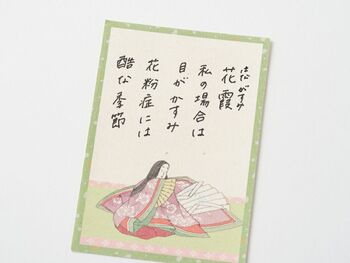 はな がすみ
花霞
私の場合は
目がかすみ
花粉症には
酷な季節